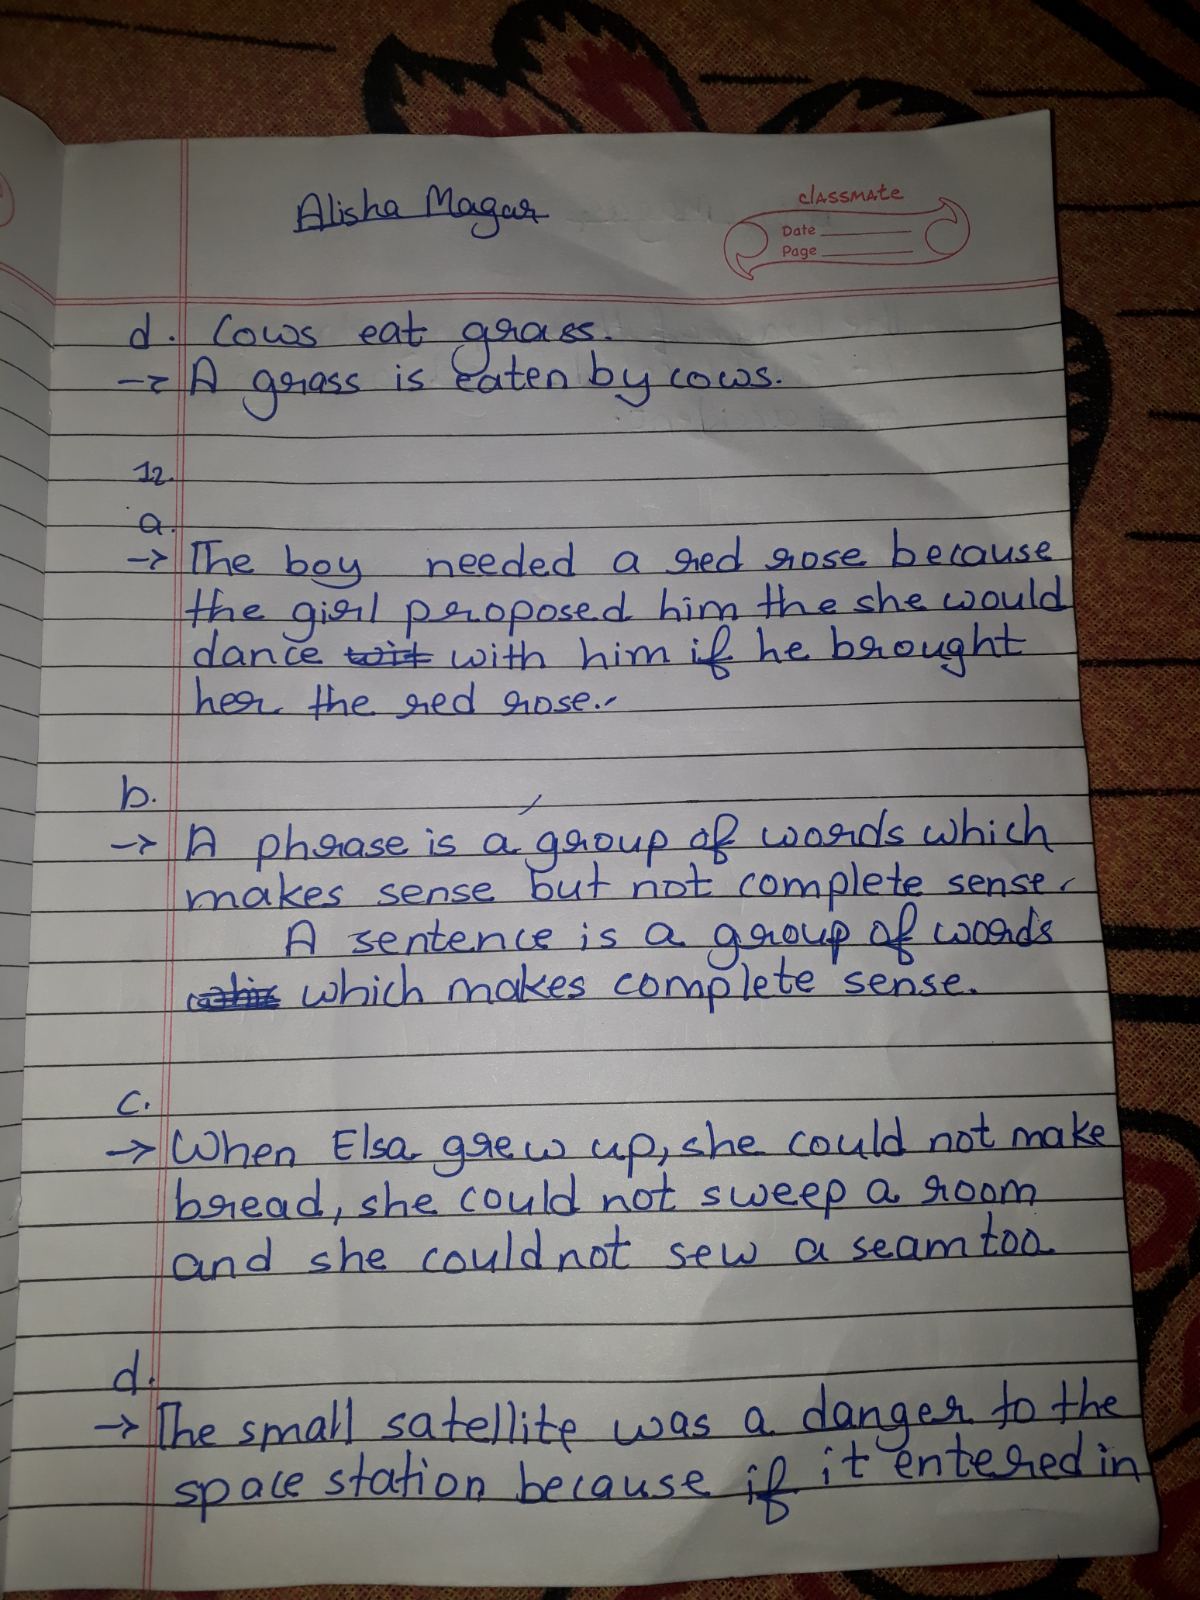 Alisha Magar
classmate
Date
Page
d. Cows eat grass.
→ A grass is eaten by cows.
12.
a.
→ The boy needed a red rose because
the girl proposed him the she would
dance with him if he brought
her the red rose.
b.
→ A phrase is a group of words which
makes sense but not complete sense.
A sentence is a group of words
which makes complete sense.
c.
→ When Elsa grew up, she could not make
bread, she could not sweep a room
and she could not sew a seam too.
d.
→ The small satellite was a danger to the
space station because if it entered in